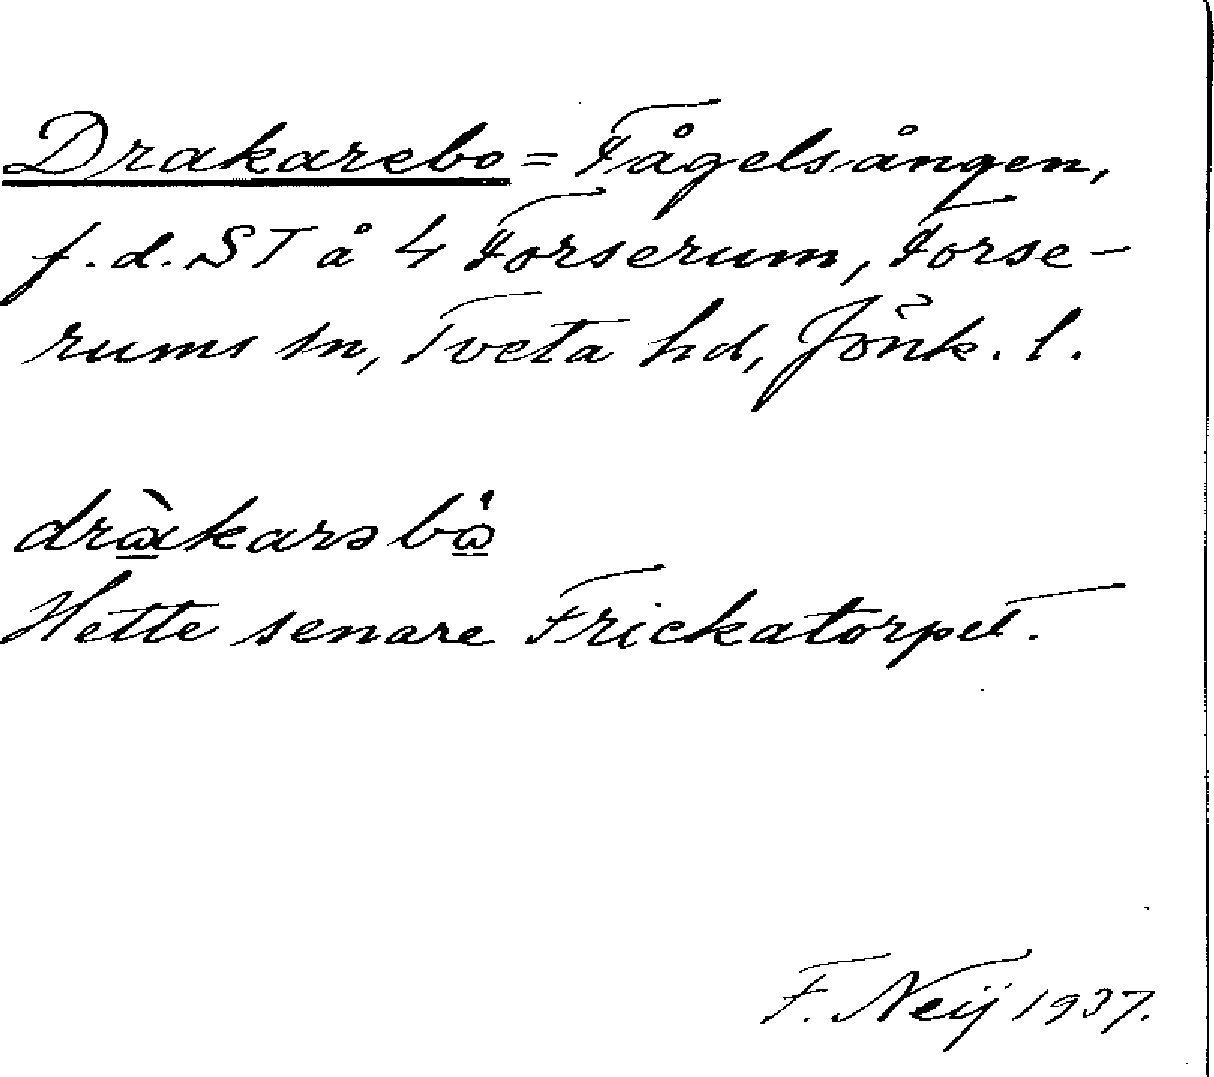 Drakarebo = Fågelsången,
f.d. ST å 4 Forserum, Forse-
rums sn, Tveta hd, Jönk. l.
dràkarəbω̇
Hette senare Frickatorpet.
F. Neij 1937.